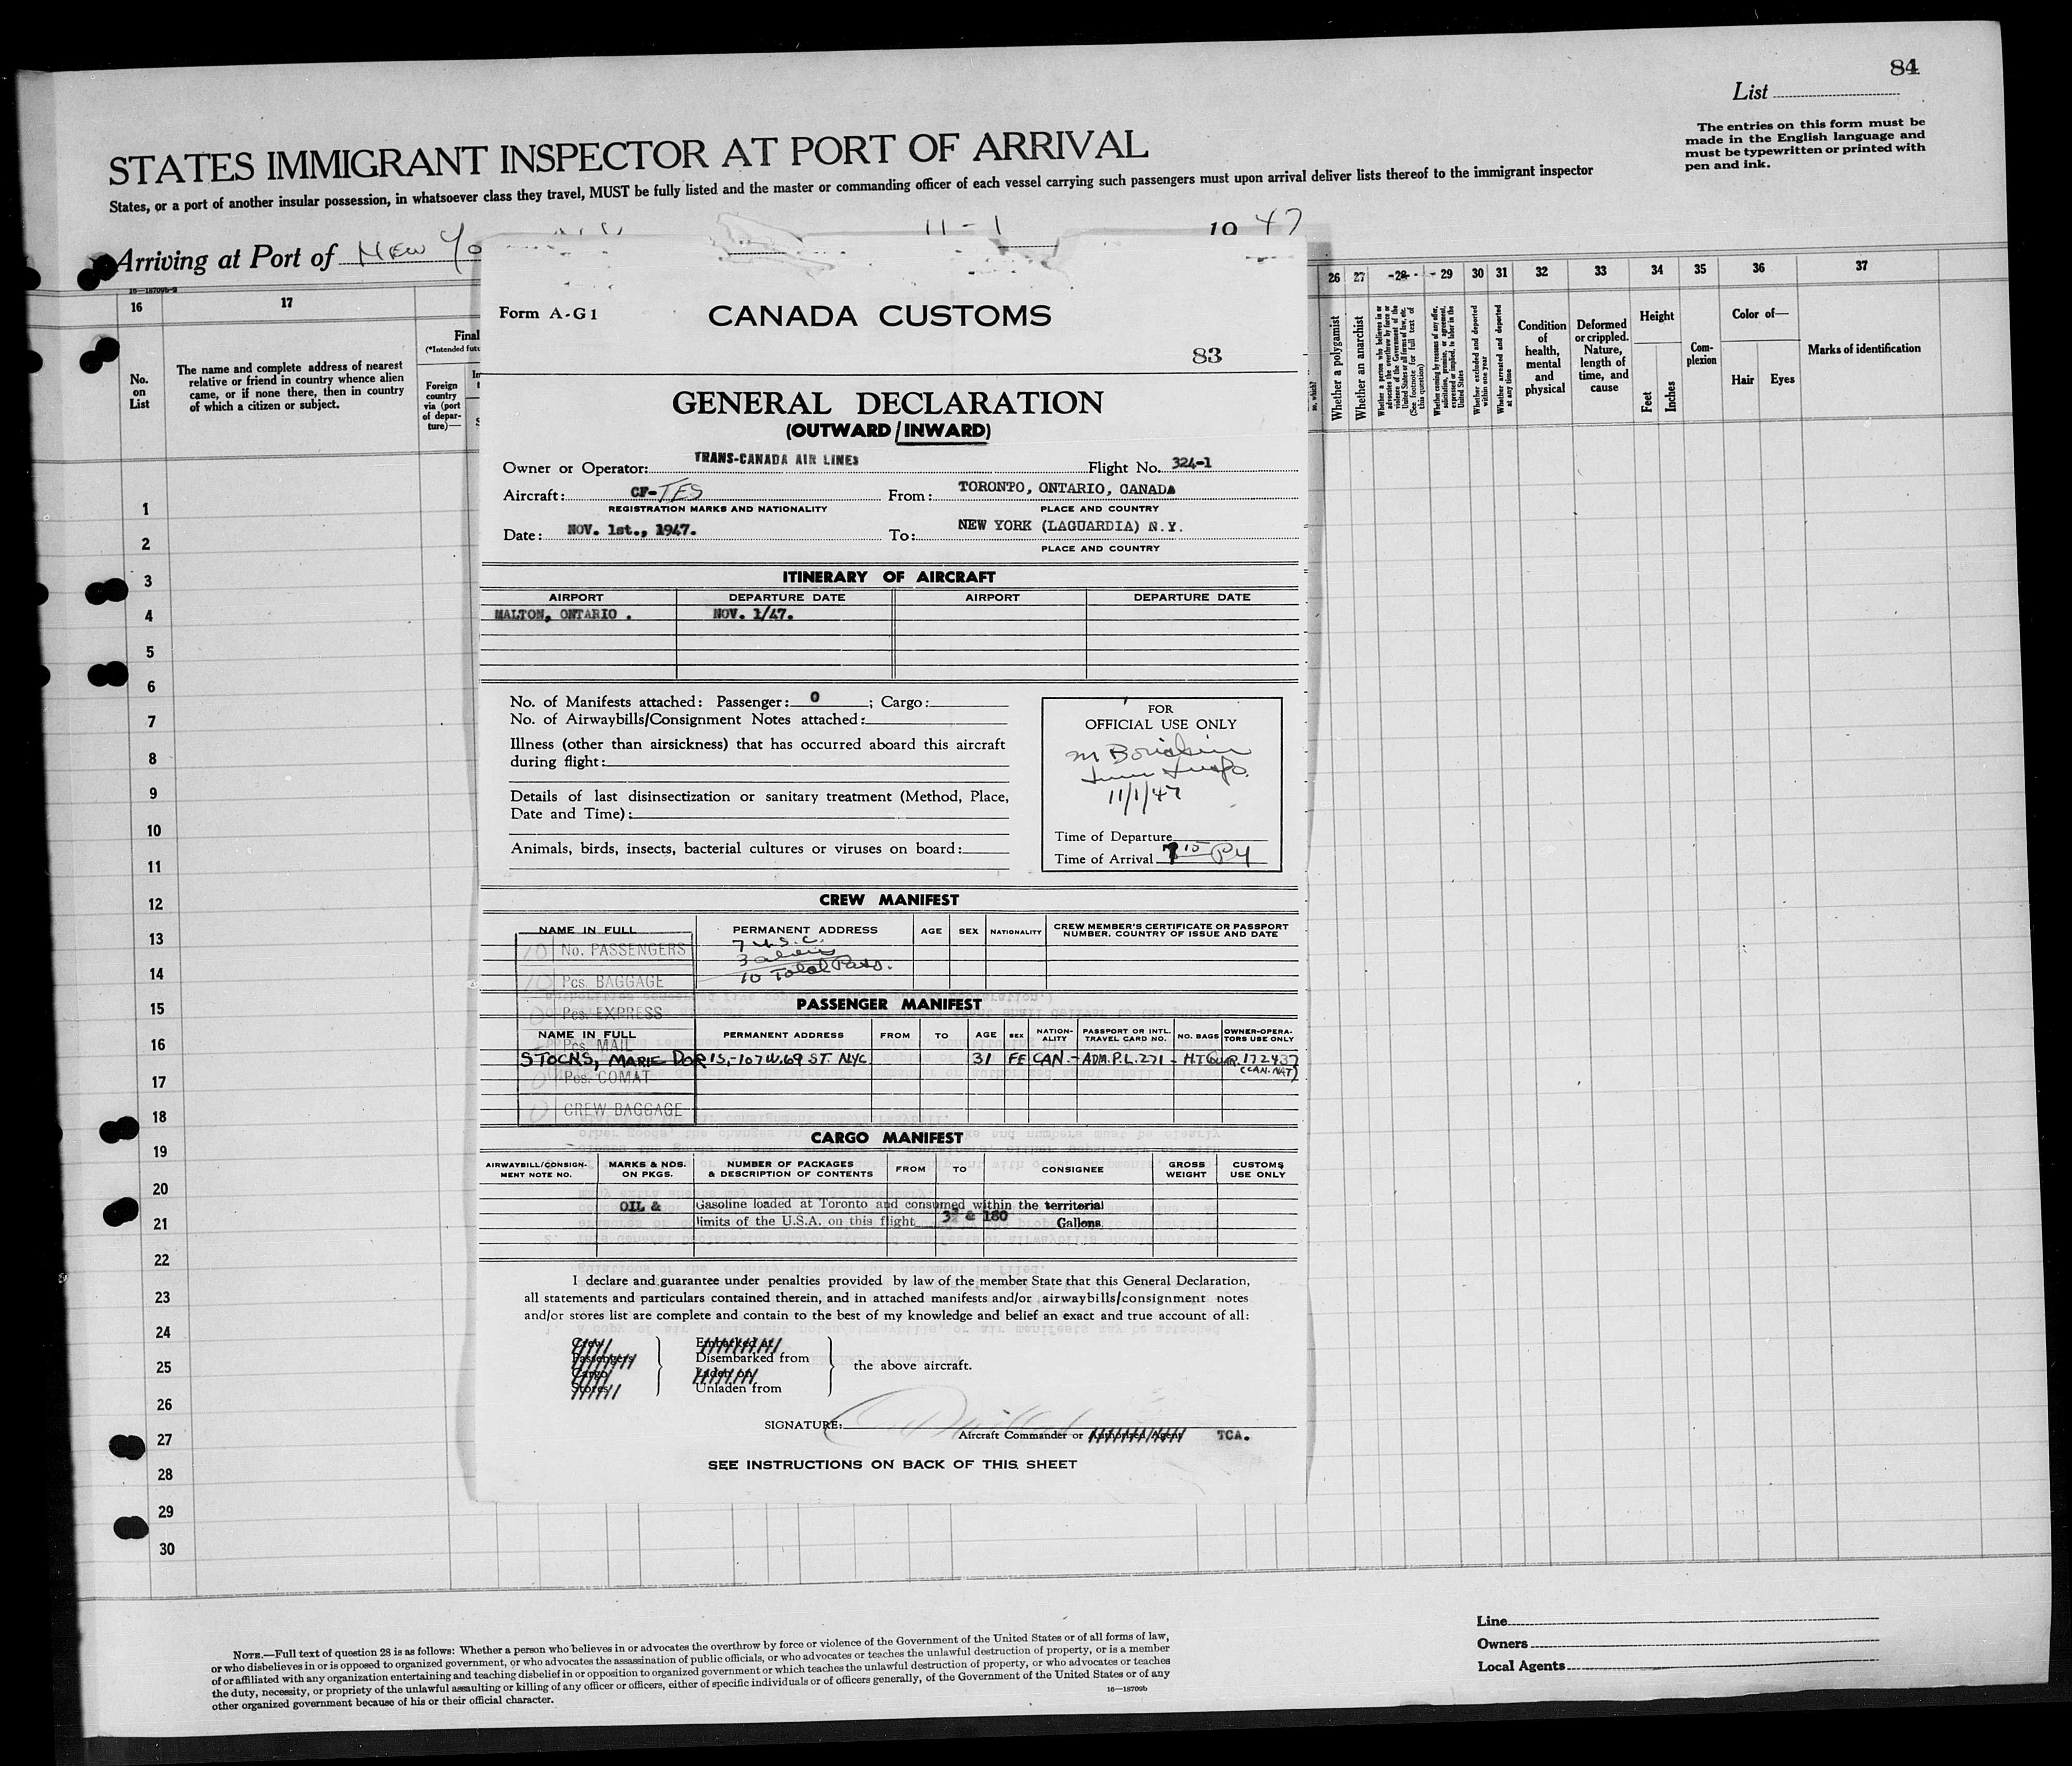 84
List
The entries on this form must be
made in the English language and
must be typewritten or printed with
pen and ink.
STATES IMMIGRANT INSPECTOR AT PORT OF ARRIVAL
States, or a port of another insular possession, in whatsoever class they travel, MUST be fully listed and the master or commanding officer of each vessel carrying such passengers must upon arrival deliver lists thereof to the immigrant inspector
Arriving at Port of New Yo 11-1 1947
16 17 26 27 28 29 30 31 32 33 34 35 36 37
No.
on
List
The name and complete address of nearest
relative or friend in country whence alien
came, or if none there, then in country
of which a citizen or subject.
Final
(*Intended futu
Foreign
country
via (port
of depar-
ture)—
Whether a polygamist
Whether an anarchist
Whether a person who believes in or
advocates the overthrow by force or
violence of the Government of the
United States or all forms of law, etc.
(See footnote for full text of
this question)
Whether coming by reasons of any offer,
solicitation, promise, or agreement,
expressed or implied, to labor in the
United States
Whether excluded and deported
within one year
Whether arrested and deported
at any time
Condition
of
health,
mental
and
physical
Deformed
or crippled.
Nature,
length of
time, and
cause
Height
Feet
Inches
Com-
plexion
Color of—
Hair Eyes
Marks of identification
1
2
3
4
5
6
7
8
9
10
11
12
13
14
15
16
17
18
19
20
21
22
23
24
25
26
27
28
29
30
Form A-G1
CANADA CUSTOMS
83
GENERAL DECLARATION
(OUTWARD/INWARD)
Owner or Operator: TRANS-CANADA AIR LINES Flight No. 324-1
Aircraft: CF-TES From: TORONTO, ONTARIO, CANADA
REGISTRATION MARKS AND NATIONALITY PLACE AND COUNTRY
Date: NOV. 1st., 1947. To: NEW YORK (LAGUARDIA) N.Y.
PLACE AND COUNTRY
ITINERARY OF AIRCRAFT
AIRPORT DEPARTURE DATE AIRPORT DEPARTURE DATE
MALTON, ONTARIO . NOV. 1/47.
No. of Manifests attached: Passenger: 0 ; Cargo:
No. of Airwaybills/Consignment Notes attached:
Illness (other than airsickness) that has occurred aboard this aircraft
during flight:
Details of last disinsectization or sanitary treatment (Method, Place,
Date and Time):
Animals, birds, insects, bacterial cultures or viruses on board:
FOR
OFFICIAL USE ONLY
11/1/47
Time of Departure
Time of Arrival 7 15 PM
CREW MANIFEST
NAME IN FULL PERMANENT ADDRESS AGE SEX NATIONALITY CREW MEMBER'S CERTIFICATE OR PASSPORT
NUMBER, COUNTRY OF ISSUE AND DATE
10 No. PASSENGERS
7 U.S.C.
3 aliens
10 Total Pass.
10 Pcs. BAGGAGE
PASSENGER MANIFEST
0 Pcs. EXPRESS
NAME IN FULL PERMANENT ADDRESS FROM TO AGE SEX NATION-
ALITY PASSPORT OR INTL.
TRAVEL CARD NO. NO. BAGS OWNER-OPERA-
TORS USE ONLY
Pcs. MAIL
STOCKS, MARIE DORIS,-107 W.69 ST. NYC 31 FE CAN.-ADM.P.L.271 - H.T. 172437
(CAN.NAT)
0 Pcs. COMAT
0 CREW BAGGAGE
CARGO MANIFEST
AIRWAYBILL/CONSIGN-
MENT NOTE NO. MARKS & NOS.
ON PKGS. NUMBER OF PACKAGES
& DESCRIPTION OF CONTENTS FROM TO CONSIGNEE GROSS
WEIGHT CUSTOMS
USE ONLY
OIL & Gasoline loaded at Toronto and consumed within the territorial
limits of the U.S.A. on this flight & 180 Gallons
I declare and guarantee under penalties provided by law of the member State that this General Declaration,
all statements and particulars contained therein, and in attached manifests and/or airwaybills/consignment notes
and/or stores list are complete and contain to the best of my knowledge and belief an exact and true account of all:
Crew Embarked at
Passengers Disembarked from
Cargo Laden on the above aircraft.
Stores Unladen from
SIGNATURE:
Aircraft Commander or Authorized Agent TCA.
SEE INSTRUCTIONS ON BACK OF THIS SHEET
Line
Owners
Local Agents
NOTE.—Full text of question 28 is as follows: Whether a person who believes in or advocates the overthrow by force or violence of the Government of the United States or of all forms of law,
or who disbelieves in or is opposed to organized government, or who advocates the assassination of public officials, or who advocates or teaches the unlawful destruction of property, or is a member
of or affiliated with any organization entertaining and teaching disbelief in or opposition to organized government or which teaches the unlawful destruction of property, or who advocates or teaches
the duty, necessity, or propriety of the unlawful assaulting or killing of any officer or officers, either of specific individuals or of officers generally, of the Government of the United States or of any
other organized government because of his or their official character.
16—18709b